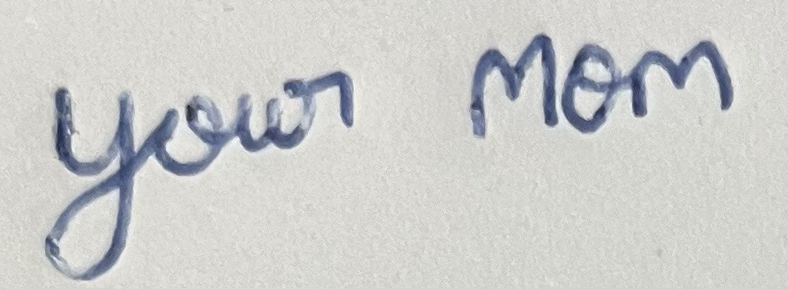 your Mom